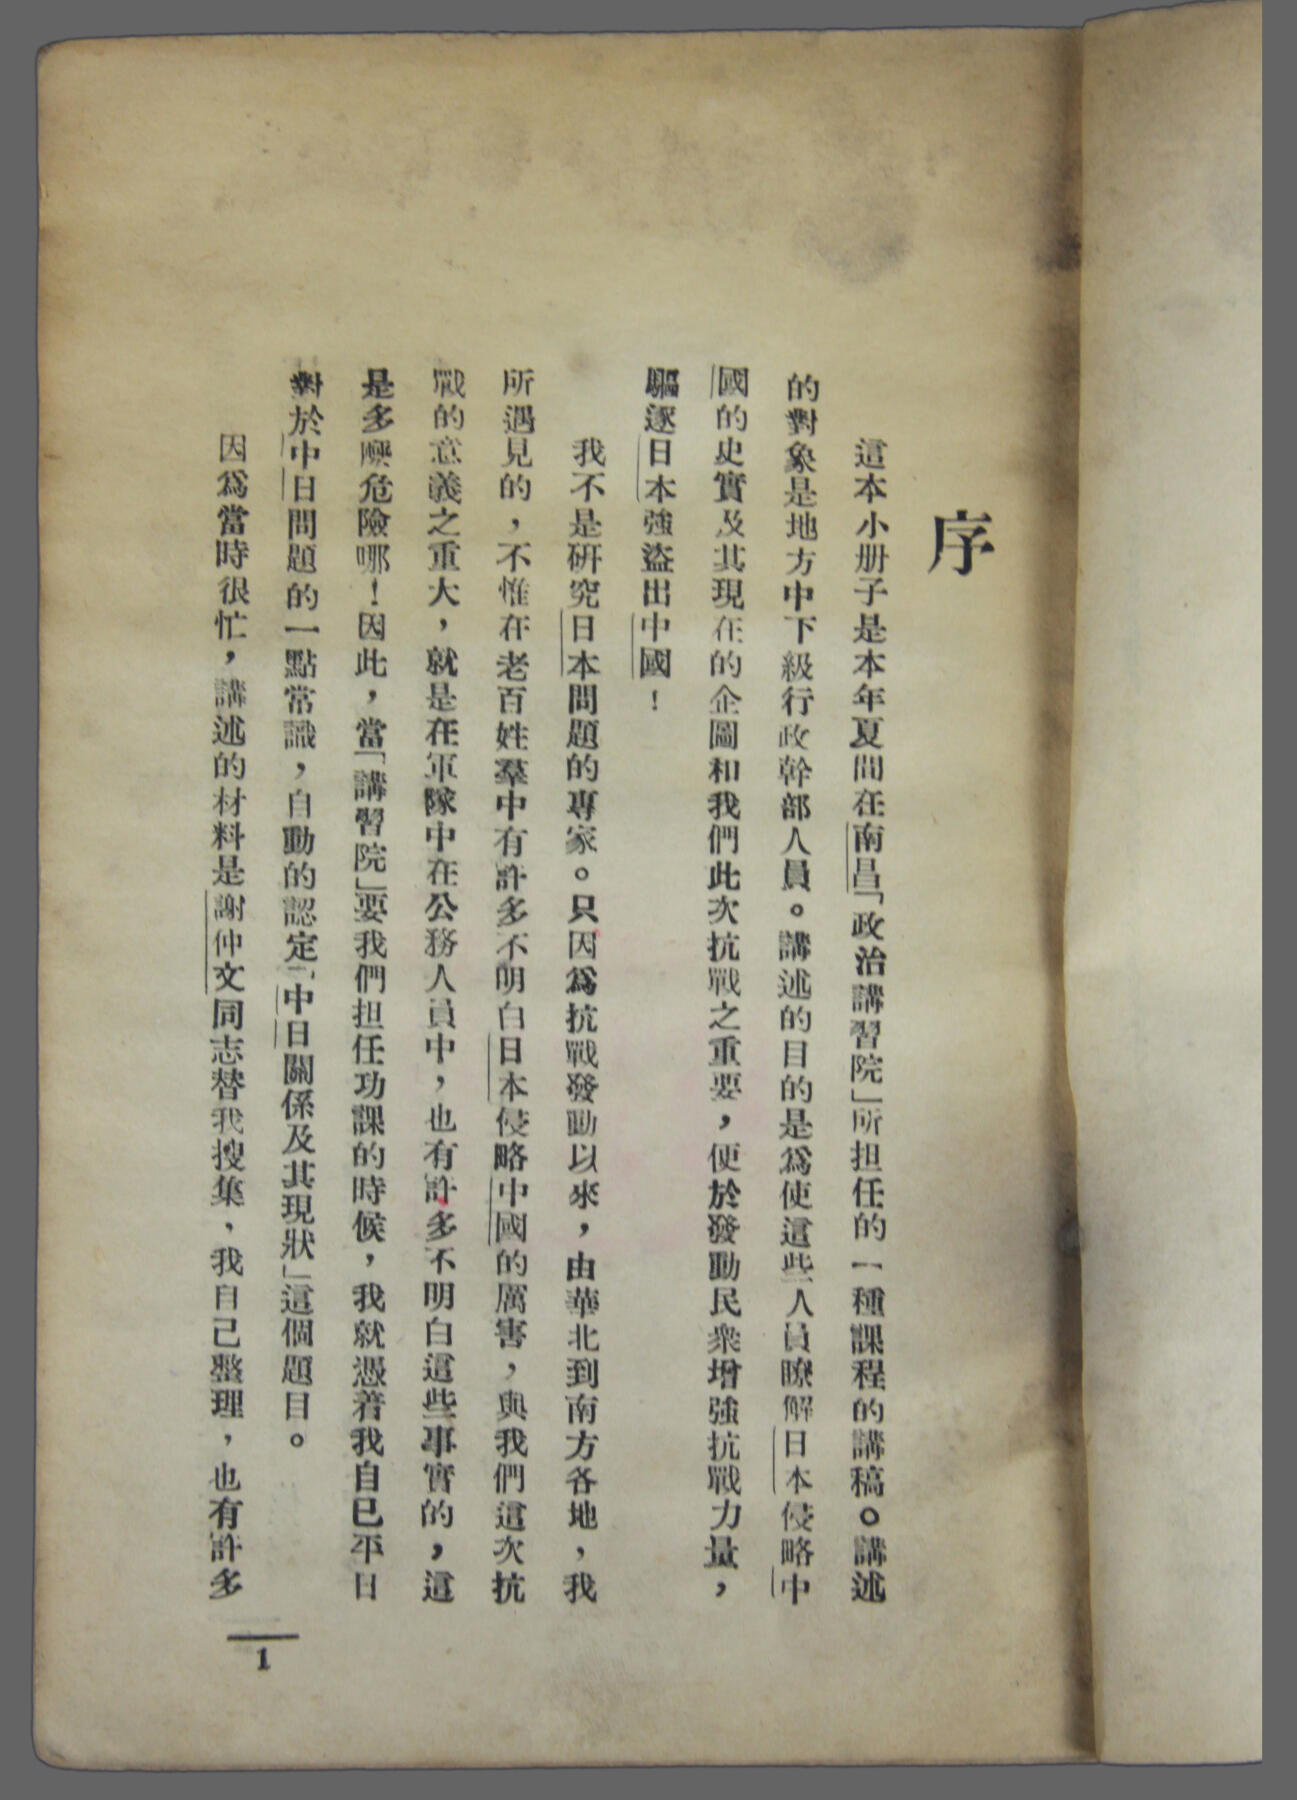 序
這本小册子是本年夏間在南昌「政治講習院」所担任的一種課程的講稿。講述
的對象是地方中下級行政幹部人員。講述的目的是爲使這些人員瞭解日本侵略中
國的史實及其現在的企圖和我們此次抗戰之重要，便於發動民衆增強抗戰力量，
驅逐日本強盜出中國！
我不是研究日本問題的專家。只因爲抗戰發動以來，由華北到南方各地，我
所遇見的，不惟在老百姓羣中有許多不明白日本侵略中國的厲害，與我們這次抗
戰的意義之重大，就是在軍隊中在公務人員中，也有許多不明白這些事實的，這
是多麽危險哪！因此，當「講習院」要我們担任功課的時候，我就憑着我自已平日
對於中日問題的一點常識，自動的認定「中日關係及其現狀」這個題目。
因爲當時很忙，講述的材料是謝仲文同志替我搜集，我自己整理，也有許多
1